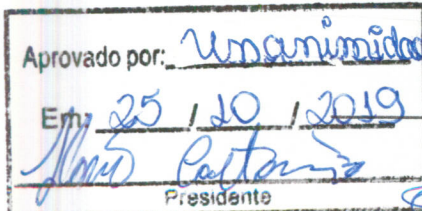 Aprovado por: Unanimidad
Em: 25 / 10 / 2019
Presidente